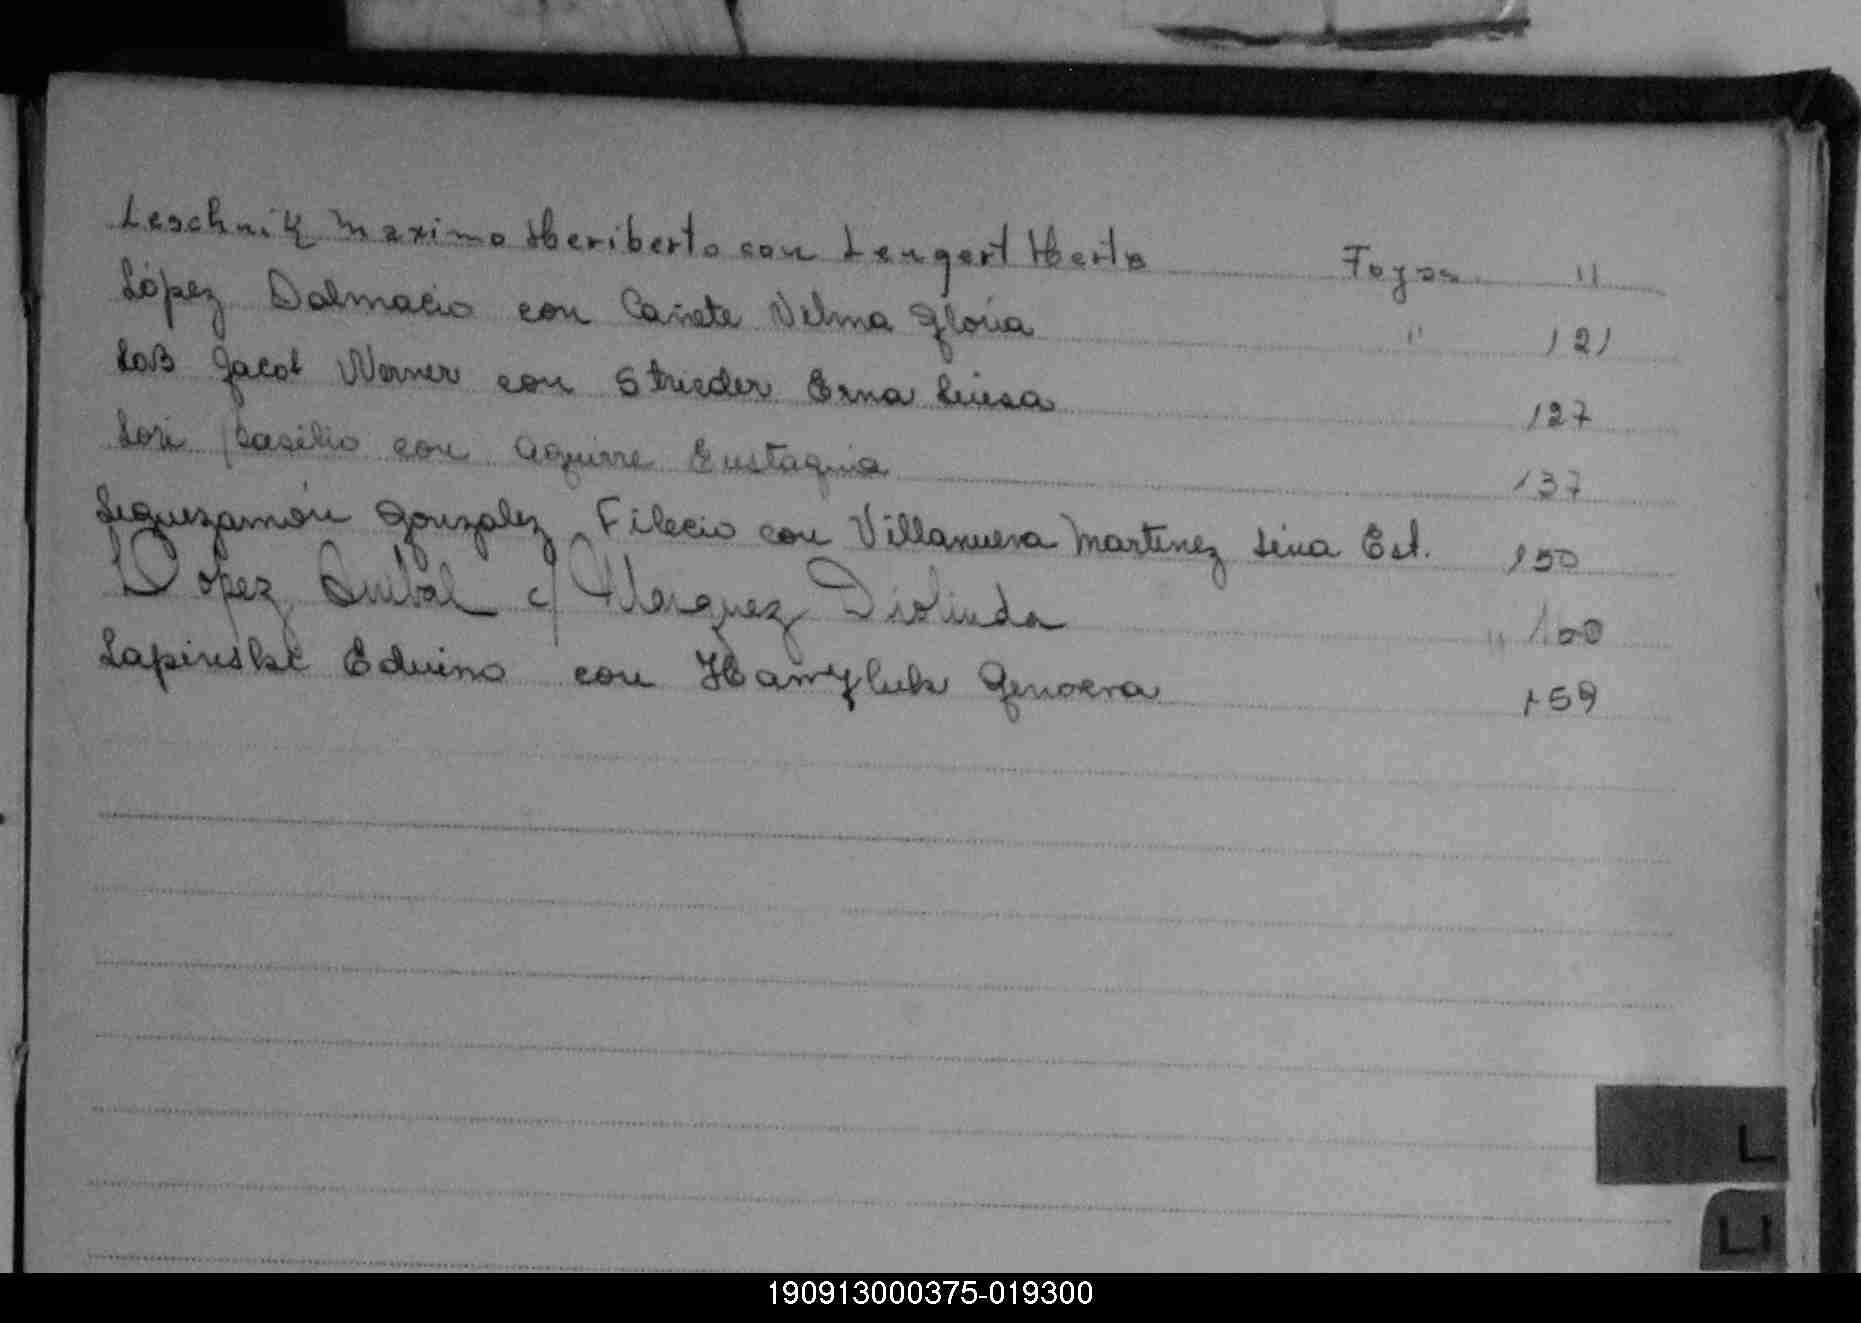 Leschnik Maximo Heriberto con Lengert Herta Fojas 11
López Dalmacio con Cañete Velma Gloria " 121
Loß Jacob Werner con Strieder Erna Luisa 127
Basilio con Aguirre Eustaquia 137
Leguizamón Gonzalez Filecio con Villanueva Martinez Lina Est. 150
Lopez Anibal c/ Marquez Diolinda " 100
Lapinski Eduino con Genoveva 159
L
Ll
190913000375-019300